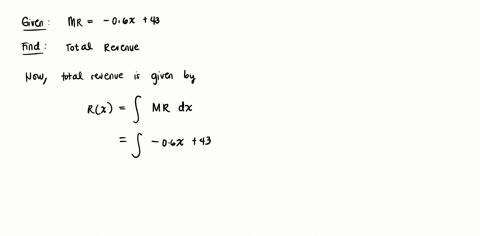 Given: MR = -0.6x + 43
Find: Total Revenue
Now, total revenue is given by
R(x) = ∫ MR dx
= ∫ -0.6x + 43